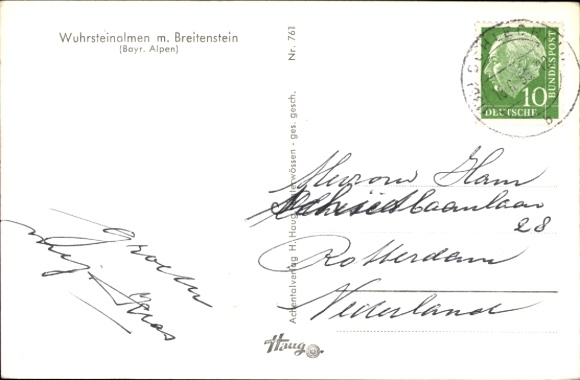 Wuhrsteinalmen m. Breitenstein
(Bayr. Alpen)
Nr. 761
Achentalverlag H. Haug, Unterwössen - ges. gesch.
Haug
10
DEUTSCHE
BUNDESPOST
Mevrouw Ham
28
Rotterdam
Nederland
Groeten